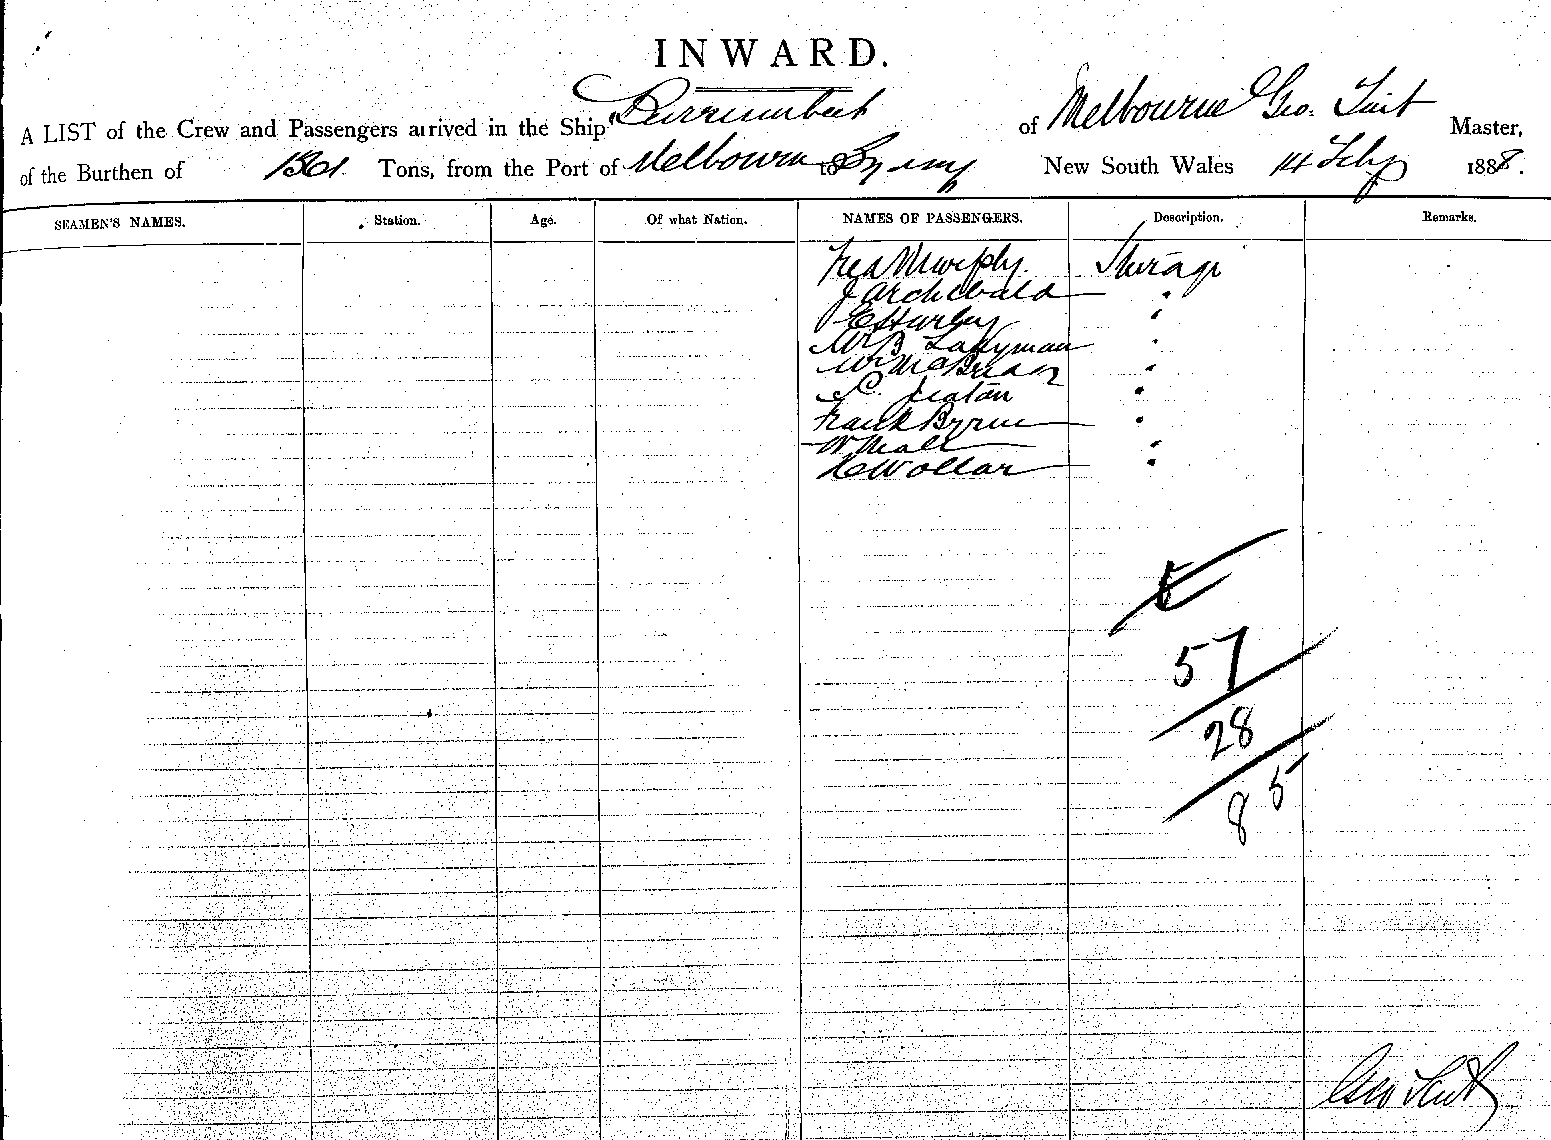 INWARD.
A LIST of the Crew and Passengers arrived in the Ship "Burrumbeet of Melbourne Geo. Tait Master,
of the Burthen of Tons, from the Port of Melbourne to Sydney New South Wales 14 Feby 1888.
SEAMEN'S NAMES. Station. Age. Of what Nation. NAMES OF PASSENGERS. Description. Remarks.
Fred Murphy. Steerage
J Archibald "
E Hurley "
W B Ladyman "
Wm "
C. "
Frank Byrne "
W "
"
57
28
85
Geo Tait